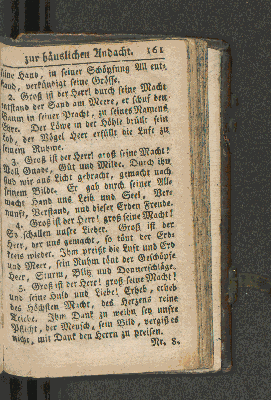 zur häuslichen Andacht. 161
seine Hand, in seiner Schöpfung All ent-
stand, verkündigt seine Grösse.
2. Groß ist der Herr! durch seine Macht
entstand der Sand am Meere, er schuf den
Baum in seiner Pracht, zu seines Namens
Ehre. Der Löwe in der Höhle brüllt sein
Lob, der Vögel Heer erfüllt die Luft zu
seinem Ruhme.
3. Groß ist der Herr! groß seine Macht!
Voll Gnade, Güt und Milde. Durch ihn
sind wir ans Licht gebracht, gemacht nach
seinem Bilde. Er gab durch seine All-
macht Hand uns Leib und Seel, Ver-
nunft, Verstand, und dieser Erden Freude.
4. Groß ist der Herr! groß seine Macht!
So schallen unsre Lieder. Groß ist der
Herr, der uns gemacht, so tönt der Erd-
kreis wieder. Ihn preißt die Luft und Erd
und Meer, sein Ruhm tönt der Geschöpfe
Heer, Sturm, Blitz und Donnerschläge.
5. Groß ist der Herr! groß seine Macht!
und seine Huld und Liebe! Erheb, erheb
des Höchsten Macht, des Herzens reine
Triebe. Ihm Dank zu weihn sey unsre
Pflicht, der Mensch, sein Bild, vergiß es
nicht, mit Dank den Herrn zu preisen.
Nr. 8.